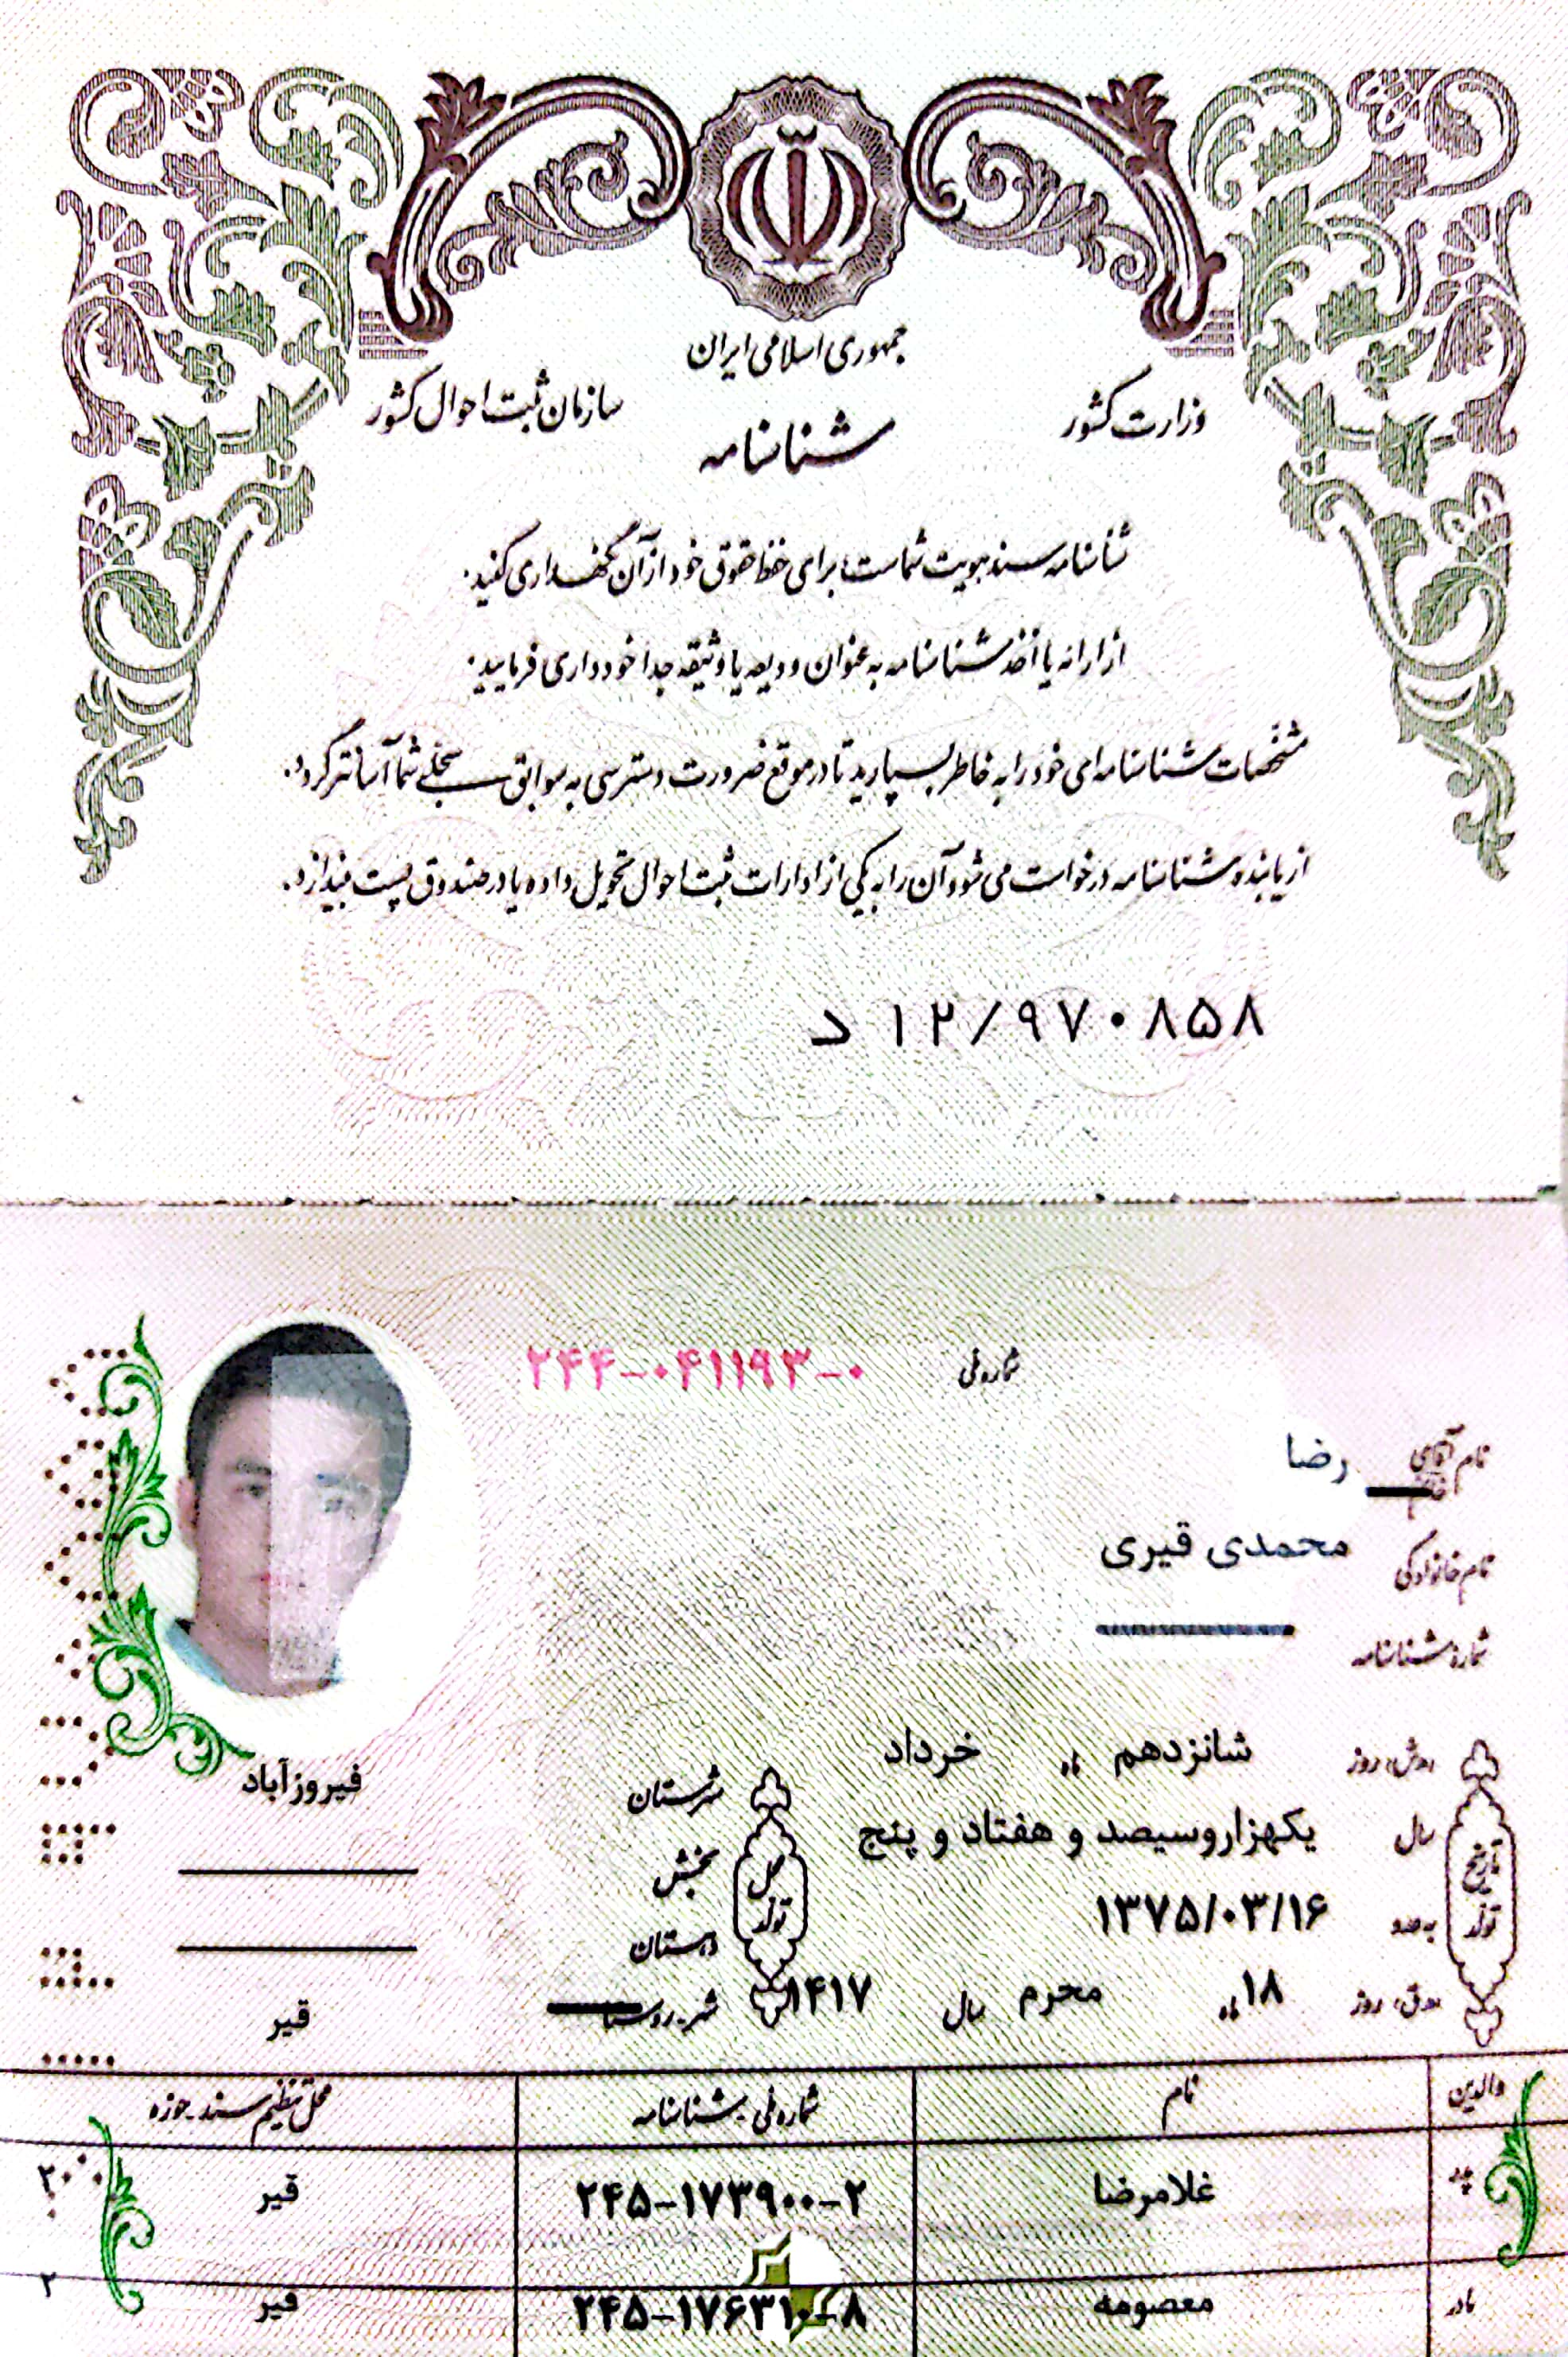 جمهوری اسلامی ایران
وزارت کشور
سازمان ثبت احوال کشور
شناسنامه
شناسنامه سند هویت شماست، برای حفظ حقوق خود از آن نگهداری کنید.
از ارائه یا أخذ شناسنامه به عنوان ودیعه یا وثیقه جداً خودداری فرمایید.
مشخصات شناسنامه‌ای خود را به خاطر بسپارید تا در موقع ضرورت دسترسی به سوابق سجلی شما آسانتر گردد.
از یابنده شناسنامه درخواست می شود آن را به یکی از ادارات ثبت احوال تحویل داده یا در صندوق پست بیندازد.
د ۱۲/۹۷۰۸۵۸
شماره ملی ۲۴۴-۰۴۱۱۹۳-۰
نام آقای رضا
نام خانوادگی محمدی قیری
شماره شناسنامه
تاریخ تولد
ه.ش، روز شانزدهم ماه خرداد
سال یکهزاروسیصد و هفتاد و پنج
به عدد ۱۳۷۵/۰۳/۱۶
ه.ق، روز ۱۸ ماه محرم سال ۱۴۱۷
محل تولد
شهرستان فیروزآباد
بخش
دهستان
شهر-روستا قیر
والدین نام شماره ملی - شناسنامه محل تنظیم سند - حوزه
پدر غلامرضا ۲۴۵-۱۷۳۹۰۰-۲ قیر ۲
مادر معصومه ۲۴۵-۱۷۶۳۱۰-۸ قیر ۲